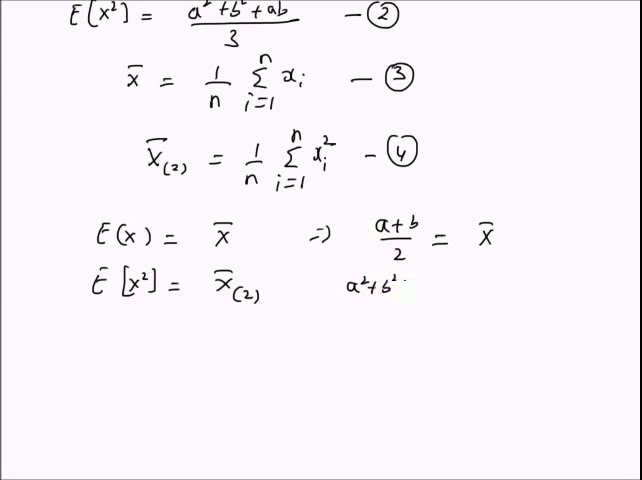 E[x²] = a²+b²+ab / 3 — ②
x̄ = 1/n Σ_{i=1}^{n} xᵢ — ③
x̄₍₂₎ = 1/n Σ_{i=1}^{n} xᵢ² — ④
E(x) = x̄ ⇒ a+b / 2 = x̄
E[x²] = x̄₍₂₎ a²+b²